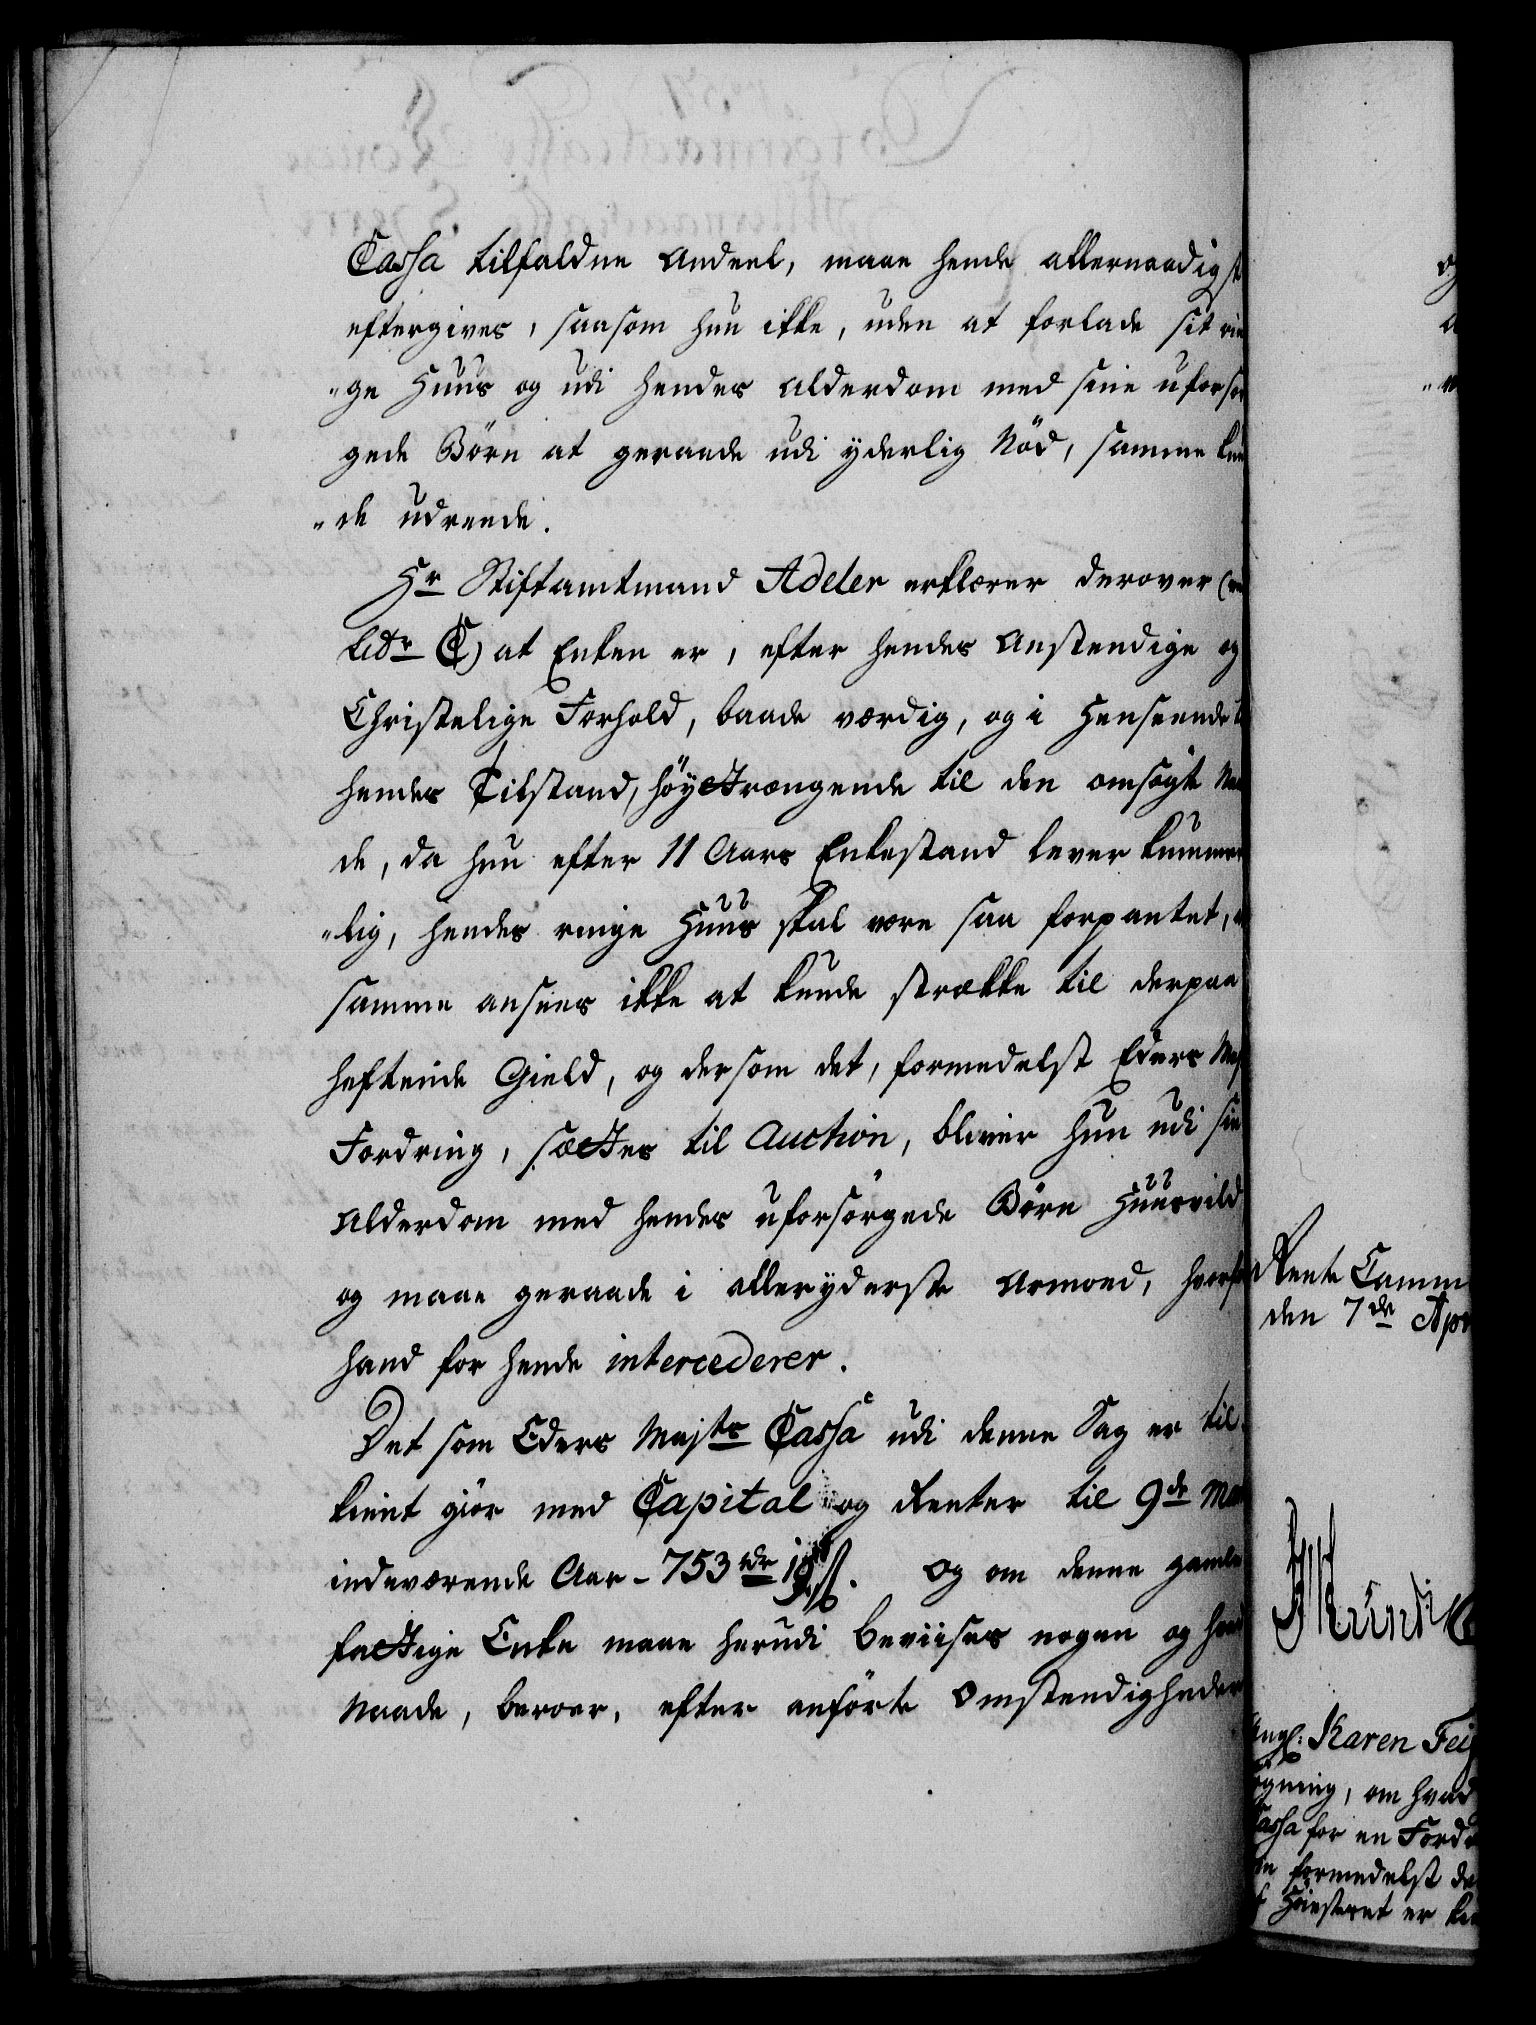 Cassa tilfaldne Andeel, maae hende allernaadigst
eftergives, saasom hun ikke, uden at forlade sit rin
"ge Huus og udi hendes Alderdom med sine uforsør
gede Børn at geraade udi yderlig Nød, samme kun
"de udreede.
Hr Stiftamtmand Adeler erklærer derover (
Litr C) at Enken er, efter hendes Anstendige og
Christelige Forhold, baade værdig, og i Henseende t
hendes Tilstand, høyttrængende til den omsøgte Naa
de, da hun efter 11 Aars Enkestand lever kummer
"lig, hendes ringe Huus skal være saa forpantet, a
samme ansees ikke at kunde strække til derpaa
heftende Gield, og dersom det, formedelst Eders Maj
Fordring, sættes til Auction, bliver hun udi sin
Alderdom med hendes uforsørgede Børn Huusvild
og maae geraade i alleryderste Armoed, hvorfor
hand for hende intercederer.
Det som Eders Majts Cassa udi denne Sag er til
kient giør med Capital og Renter til 9de Mar
indeværende Aar - 753 rdr 19 ß. Og om denne gamle
fattige Enke maae herudi beviises nogen og hvad
Naade, beroer, efter anførte Omstendigheder
Rente Camm
den 7de Apr
Ang: Karen Fei
gning, om hvad
Cassa for en Ford
formedelst de
Høiesteret er